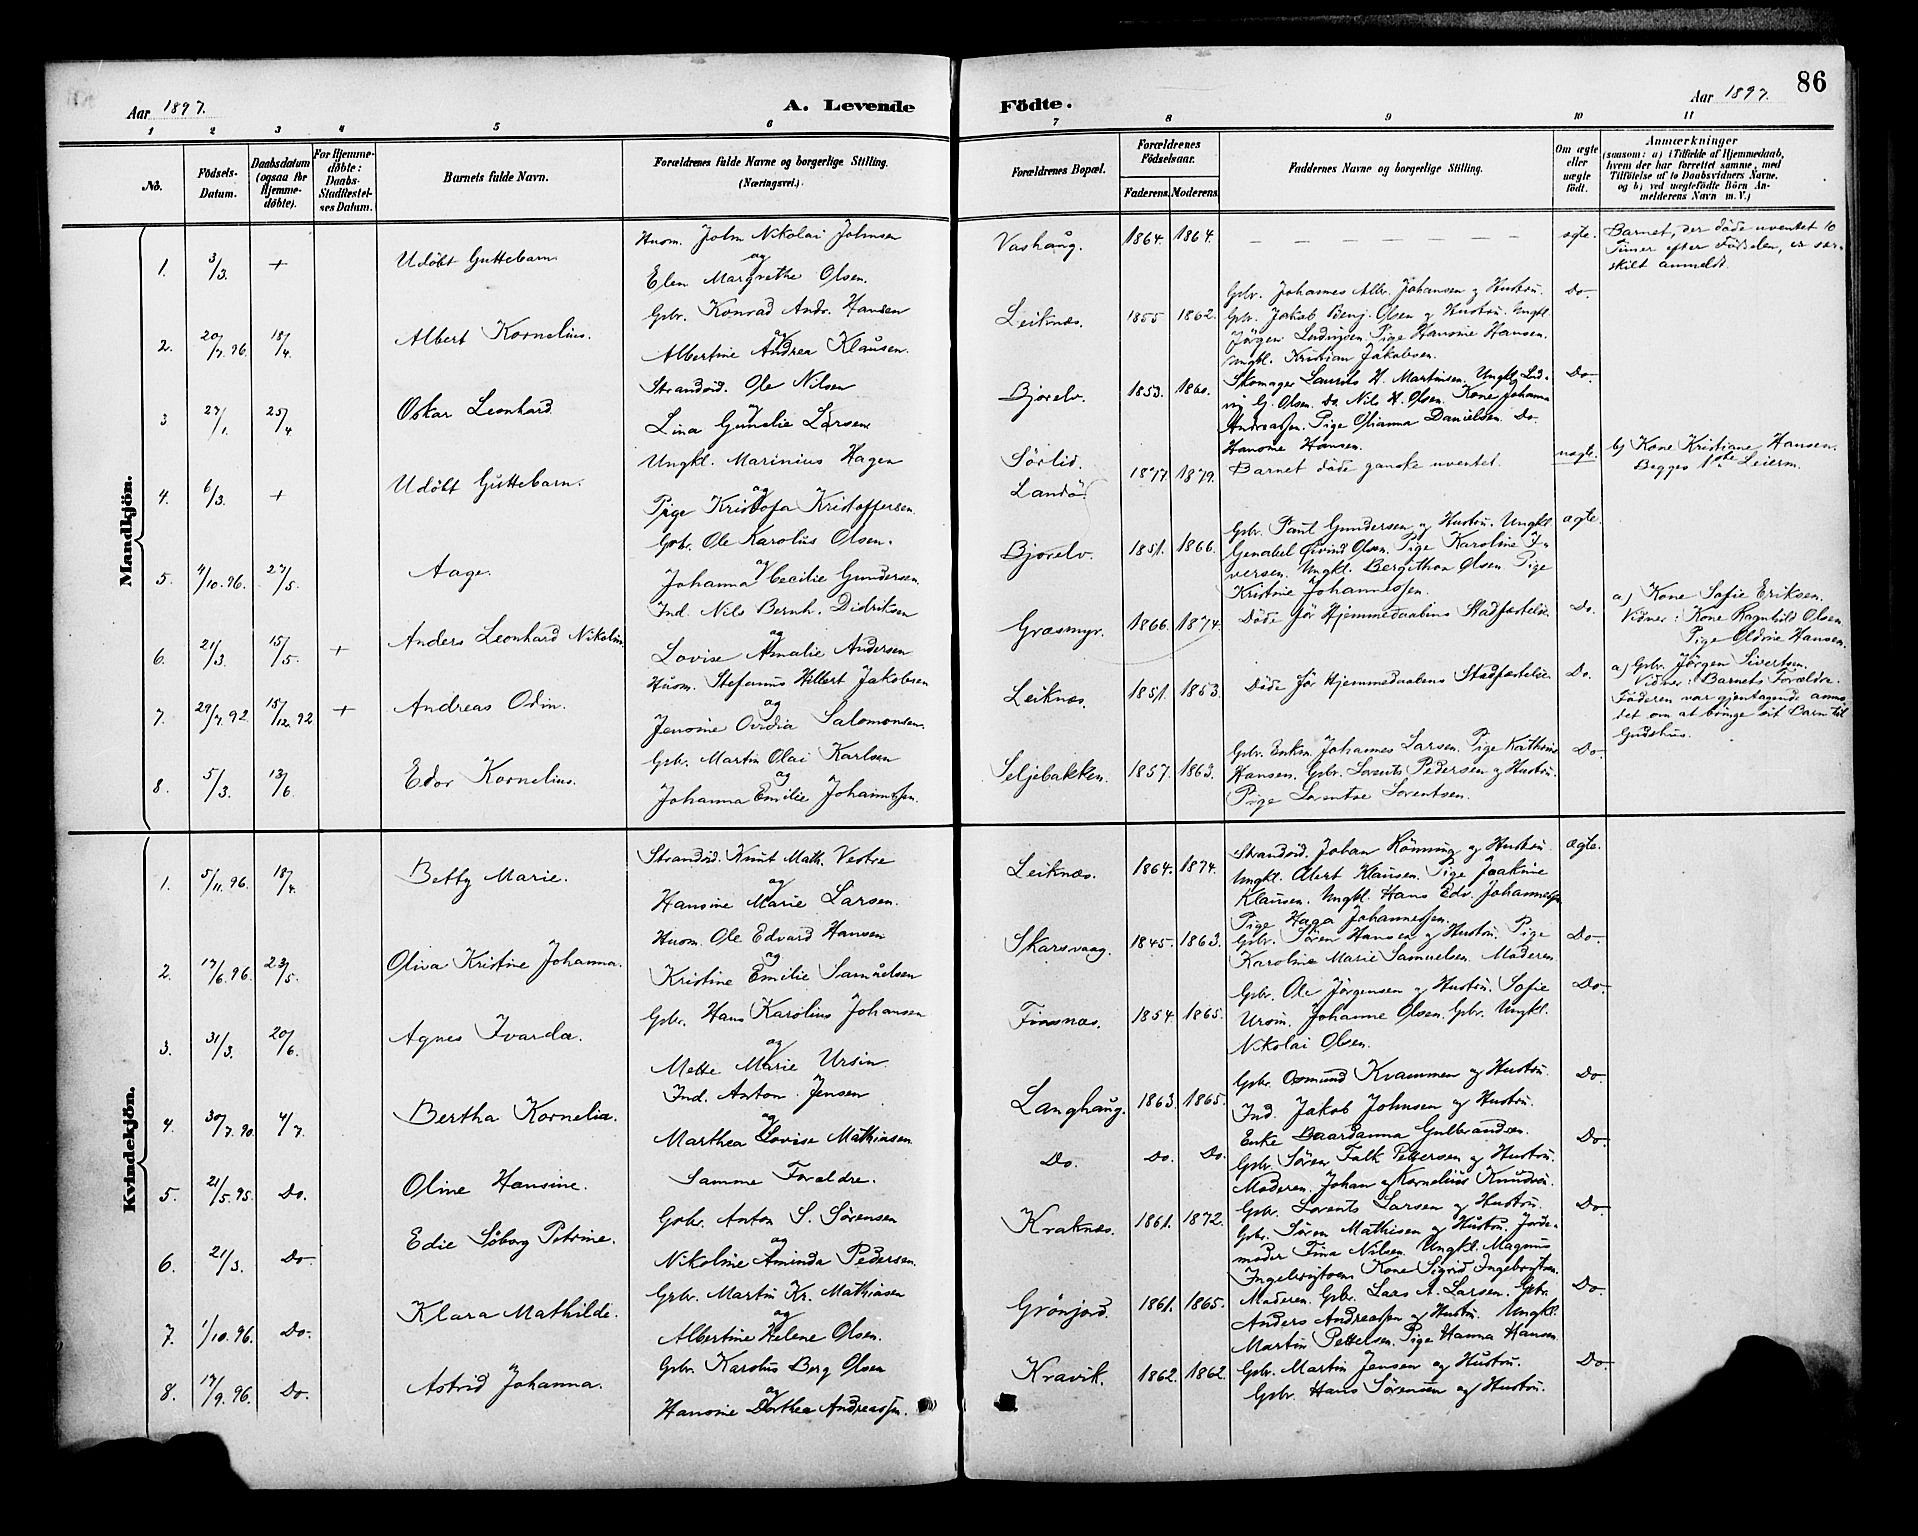 86
Aar 1897.
A. Levende Födte.
Aar 1897.
1 2 3 4 5 6 7 8 9 10 11
No.
Födsels-Datum.
Daabsdatum (ogsaa for Hjemme-döbte).
For Hjemme-döbte: Daabs-Stadfæstel-ses Datum.
Barnets fulde Navn.
Forældrenes fulde Navne og borgerlige Stilling. (Næringsvei.)
Forældrenes Bopæl.
Forældrenes Födselsaar.
Faderens. Moderens.
Faddernes Navne og borgerlige Stilling.
Om ægte eller uægte födt.
Anmærkninger
(saasom: a) i Tilfælde af Hjemmedaab,
hvem der har forrettet samme, med
Tilföielse af to Daabsvidners Navne.
og b) ved uægtefödte Börn An-
melderens Navn m. V.)
Mandkjön.
1. 3/3. + Udöbt Guttebarn.
Husm. Johm Nikolai Johnsen
og
Elen Margrethe Olsen.
Vashaug. 1864. 1864. — — — — — — — — ægte.
Barnet, der döde uventet 10
Timer efter Födselen, er sær-
skilt anmeldt.
2. 20/7.96. 18/4. Albert Kornelius.
Gbr. Konrad Andr. Hansen
og
Albertine Andrea Klausen.
Leiknæs. 1855 1862.
Gbr. Johannes Alb. Johansen og Hustru.
Gbr. Jakob Benj. Olsen og Hustru. Ungkl.
Jörgen Ludvigsen. Pige Hansine Hansen.
Ungkl. Kristian Jakobsen.
Do.
3 27/1. 25/4 Oskar Leonhard.
Strandsid. Ole Nilsen
og
Lina Gunelie Larsen
Bjorelv. 1853. 1860.
Skomager Laurits H. Martinsen. Ungkl. Lud-
vig G. Olsen. Do. Nils H. Olsen. Kone Johanna
Andreassen. Pige Olianna Danielsen. Do.
Hansine Hansen.
Do.
4. 6/3. + Udöbt Guttebarn.
Ungkl. Marinius Hagen
og
Pige Kristofa Kristoffersen.
Sörlid.
Landö
1877. 1879. Barnet döde ganske uventet. uægte.
b) Kone Kristiane Hansen.
Begges 1ste Leierm.
5. 4/10.96. 27/5. Aage.
Gbr. Ole Karolius Olsen.
og
Johanna Cecilie Gundersen.
Bjorelv. 1851. 1866.
Gbr. Paul Gundersen og Hustru. Ungkl.
Genabel Öivind Olsen. Pige Karoline I-
versen. Ungkl. Bergithon Olsen. Pige
Kristine Johannessen.
ægte.
6. 21/3. 15/5. + Anders Leonhard Nikolai.
Ind. Nils Bernh. Didriksen
og
Lovise Amalie Andersen
Græsmyr. 1866. 1874. Döde för Hjemmedaabens Stadfæstelse. Do.
a) Kone Sofie Eriksen.
Vidner: Kone Ragnhild Olsen
Pige Oldine Hansen.
7. 29/7.92 15/12.92 + Andreas Odin.
Husm. Stefanus Hilbert Jakobsen
og
Jensine Ovidia Salomonsen.
Leiknæs. 1851. 1853. Döde för Hjemmedaabens Stadfæstelse. Do.
a) Gbr. Jörgen Sivertsen.
Vidner: Barnets Forældre.
Faderen var gjentagende anmo-
det om at bringe sit Barn til
Gudshus.
8. 5/3. 13/6. Edor Kornelius.
Gbr. Martin Olai Karlsen
og
Johanna Emilie Johannessen.
Seljebakken. 1857. 1863.
Gbr. Enkem. Johannes Larsen. Pige Kathrine
Hansen. Gbr. Lorents Pedersen og Hustru.
Pige Lorentse Lorentsen.
Do.
Kvindekjön.
1. 5/11.96. 18/4. Betty Marie.
Strandsid. Knut Math. Vestre
og
Hansine Marie Larsen.
Leiknæs. 1864. 1874.
Strandsid. Johan Rönning og Hustru
Ungkl. Albert Klausen. Pige Joakime
Klausen. Ungkl. Hans Edv. Johannessen
Pige Haga Johannessen.
Ægte.
2. 17/6.96. 23/5. Oliva Kristine Johanna.
Husm. Ole Edvard Hansen
og
Kristine Emilie Samuelsen
Skarsvaag. 1845. 1863.
Gbr. Sören Hansen og Hustru. Pige
Karoline Marie Samuelsen. Moderen
Do.
3. 31/3. 20/6. Agnes Ivarda.
Gbr. Hans Karolius Johansen
og
Mette Marie Ursin.
Finsnæs. 1854. 1865.
Gbr. Ole Jörgensen og Hustru. Sofie
Ursin. Johanne Olsen. Gbr. Ungkl.
Nikolai Olsen.
Do.
4. 30/7.90. 4/7. Bertha Kornelia.
Ind. Anton Jensen
og
Marthea Lovise Mathiasen
Langhaug. 1863. 1865.
Gbr. Osmund Kvammen og Hustru.
Ind. Jakob Johnsen og Hustru.
Enke Baardanna Gulbrandsen.
Do.
5. 21/5.95. Do. Oline Hansine.
Samme Forældre.
Do. Do. Do.
Gbr. Sören Falk Pettersen og Hustru.
Moderen. Johan og Kornelius Knudsen.
Do.
6. 21/3. Do. Edie Söborg Petrine.
Gbr. Anton S. Sörensen
og
Nikoline Aminda Pedersen.
Kraknæs. 1861. 1872.
Gbr. Lorents Larsen og Hustru.
Gbr. Sören Mathisen og Hustru. Jorde-
moder Fina Nilsen. Ungkl. Magnus
Ingebrigtsen. Kone Sigrid Ingebrigtsen.
Do.
7. 1/10.96. Do. Klara Mathilde.
Gbr. Martin Kr. Mathiasen
og
Albertine Helene Olsen.
Grönjord. 1861. 1865.
Moderen. Gbr. Laas A. Larsen. Gbr.
Anders Andreassen og Hustru. Ungkl.
Martin Pettersen. Pige Hanna Hansen.
Do.
8. 17/9.96. Do. Astrid Johanna.
Gbr. Karolus Berg Olsen
og
Hansine Dorthea Andreassen.
Kravik. 1862. 1862.
Gbr. Martin Jensen og Hustru.
Gbr. Hans Sörensen og Hustru.
Do.